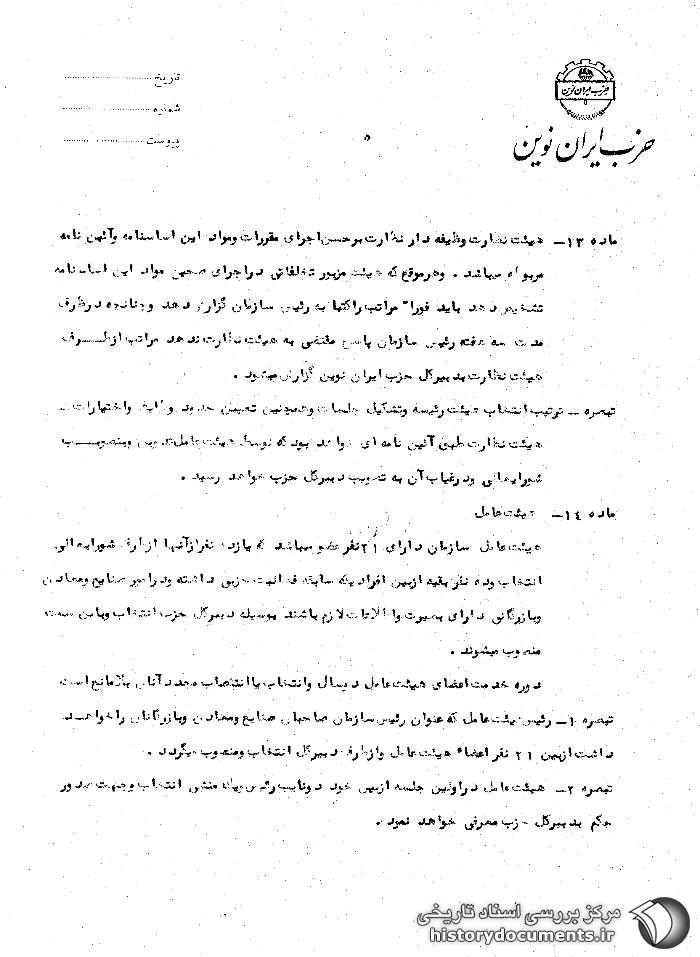 تاریخ
شماره
پیوست
حزب ایران نوین
حزب ایران نوین
۵
ماده ۱۳ــ هیئت نظارت وظیفه دار نظارت برحسن اجرای مقررات ومواد این اساسنامه وآئین نامه
مربوطه میباشد . وهرموقع که هیئت مزبور تخلفاتی دراجرای صحیح مواد این اساسنامه
تشخیص دهد باید فورا" مراتب راکتبا به رئیس سازمان گزارش دهد وچنانچه درظرف
مدت سه هفته رئیس سازمان پاسخ مقتضی به هیئت نظارت ندهد مراتب ازطرف
هیئت نظارت بدبیرکل حزب ایران نوین گزارش میشود .
تبصره ــ ترتیب انتخاب هیئت رئیسه وتشکیل جلسات وهمچنین تعیین حدود وظایف واختیارات
هیئت نظارت طبق آئین نامه ای خواهد بود که توسط هیئت عامل تدوین وبتصویب
شورایعالی ودرغیاب آن به تصویب دبیرکل حزب خواهد رسید .
ماده ۱۴ــ هیئت عامل
هیئت عامل سازمان دارای ۲۱ نفر عضو میباشد که یازده نفرازآنها ازطرف شورایعالی
انتخاب وده نفر بقیه ازبین افرادیکه سابقه فعالیت حزبی داشته ودرامور صنایع ومعادن
وبازرگانی دارای بصیرت واطلاعات لازم باشند بوسیله دبیرکل حزب انتخاب وباین سمت
منصوب میشوند .
دوره خدمت اعضای هیئت عامل دوسال وانتخاب یاانتصاب مجدد آنان بلامانع است
تبصره ۱ــ رئیس هیئت عامل که عنوان رئیس سازمان صاحبان صنایع ومعادن وبازرگانان راخواهد
داشت ازبین ۲۱ نفر اعضاء هیئت عامل وازطرف دبیرکل انتخاب ومنصوب میگردد .
تبصره ۲ــ هیئت عامل دراولین جلسه ازبین خود دونایب رئیس ویک منشی انتخاب وجهت صدور
حکم بدبیرکل حزب معرفی خواهد نمود .
مرکز بررسی اسناد تاریخی
historydocuments.ir